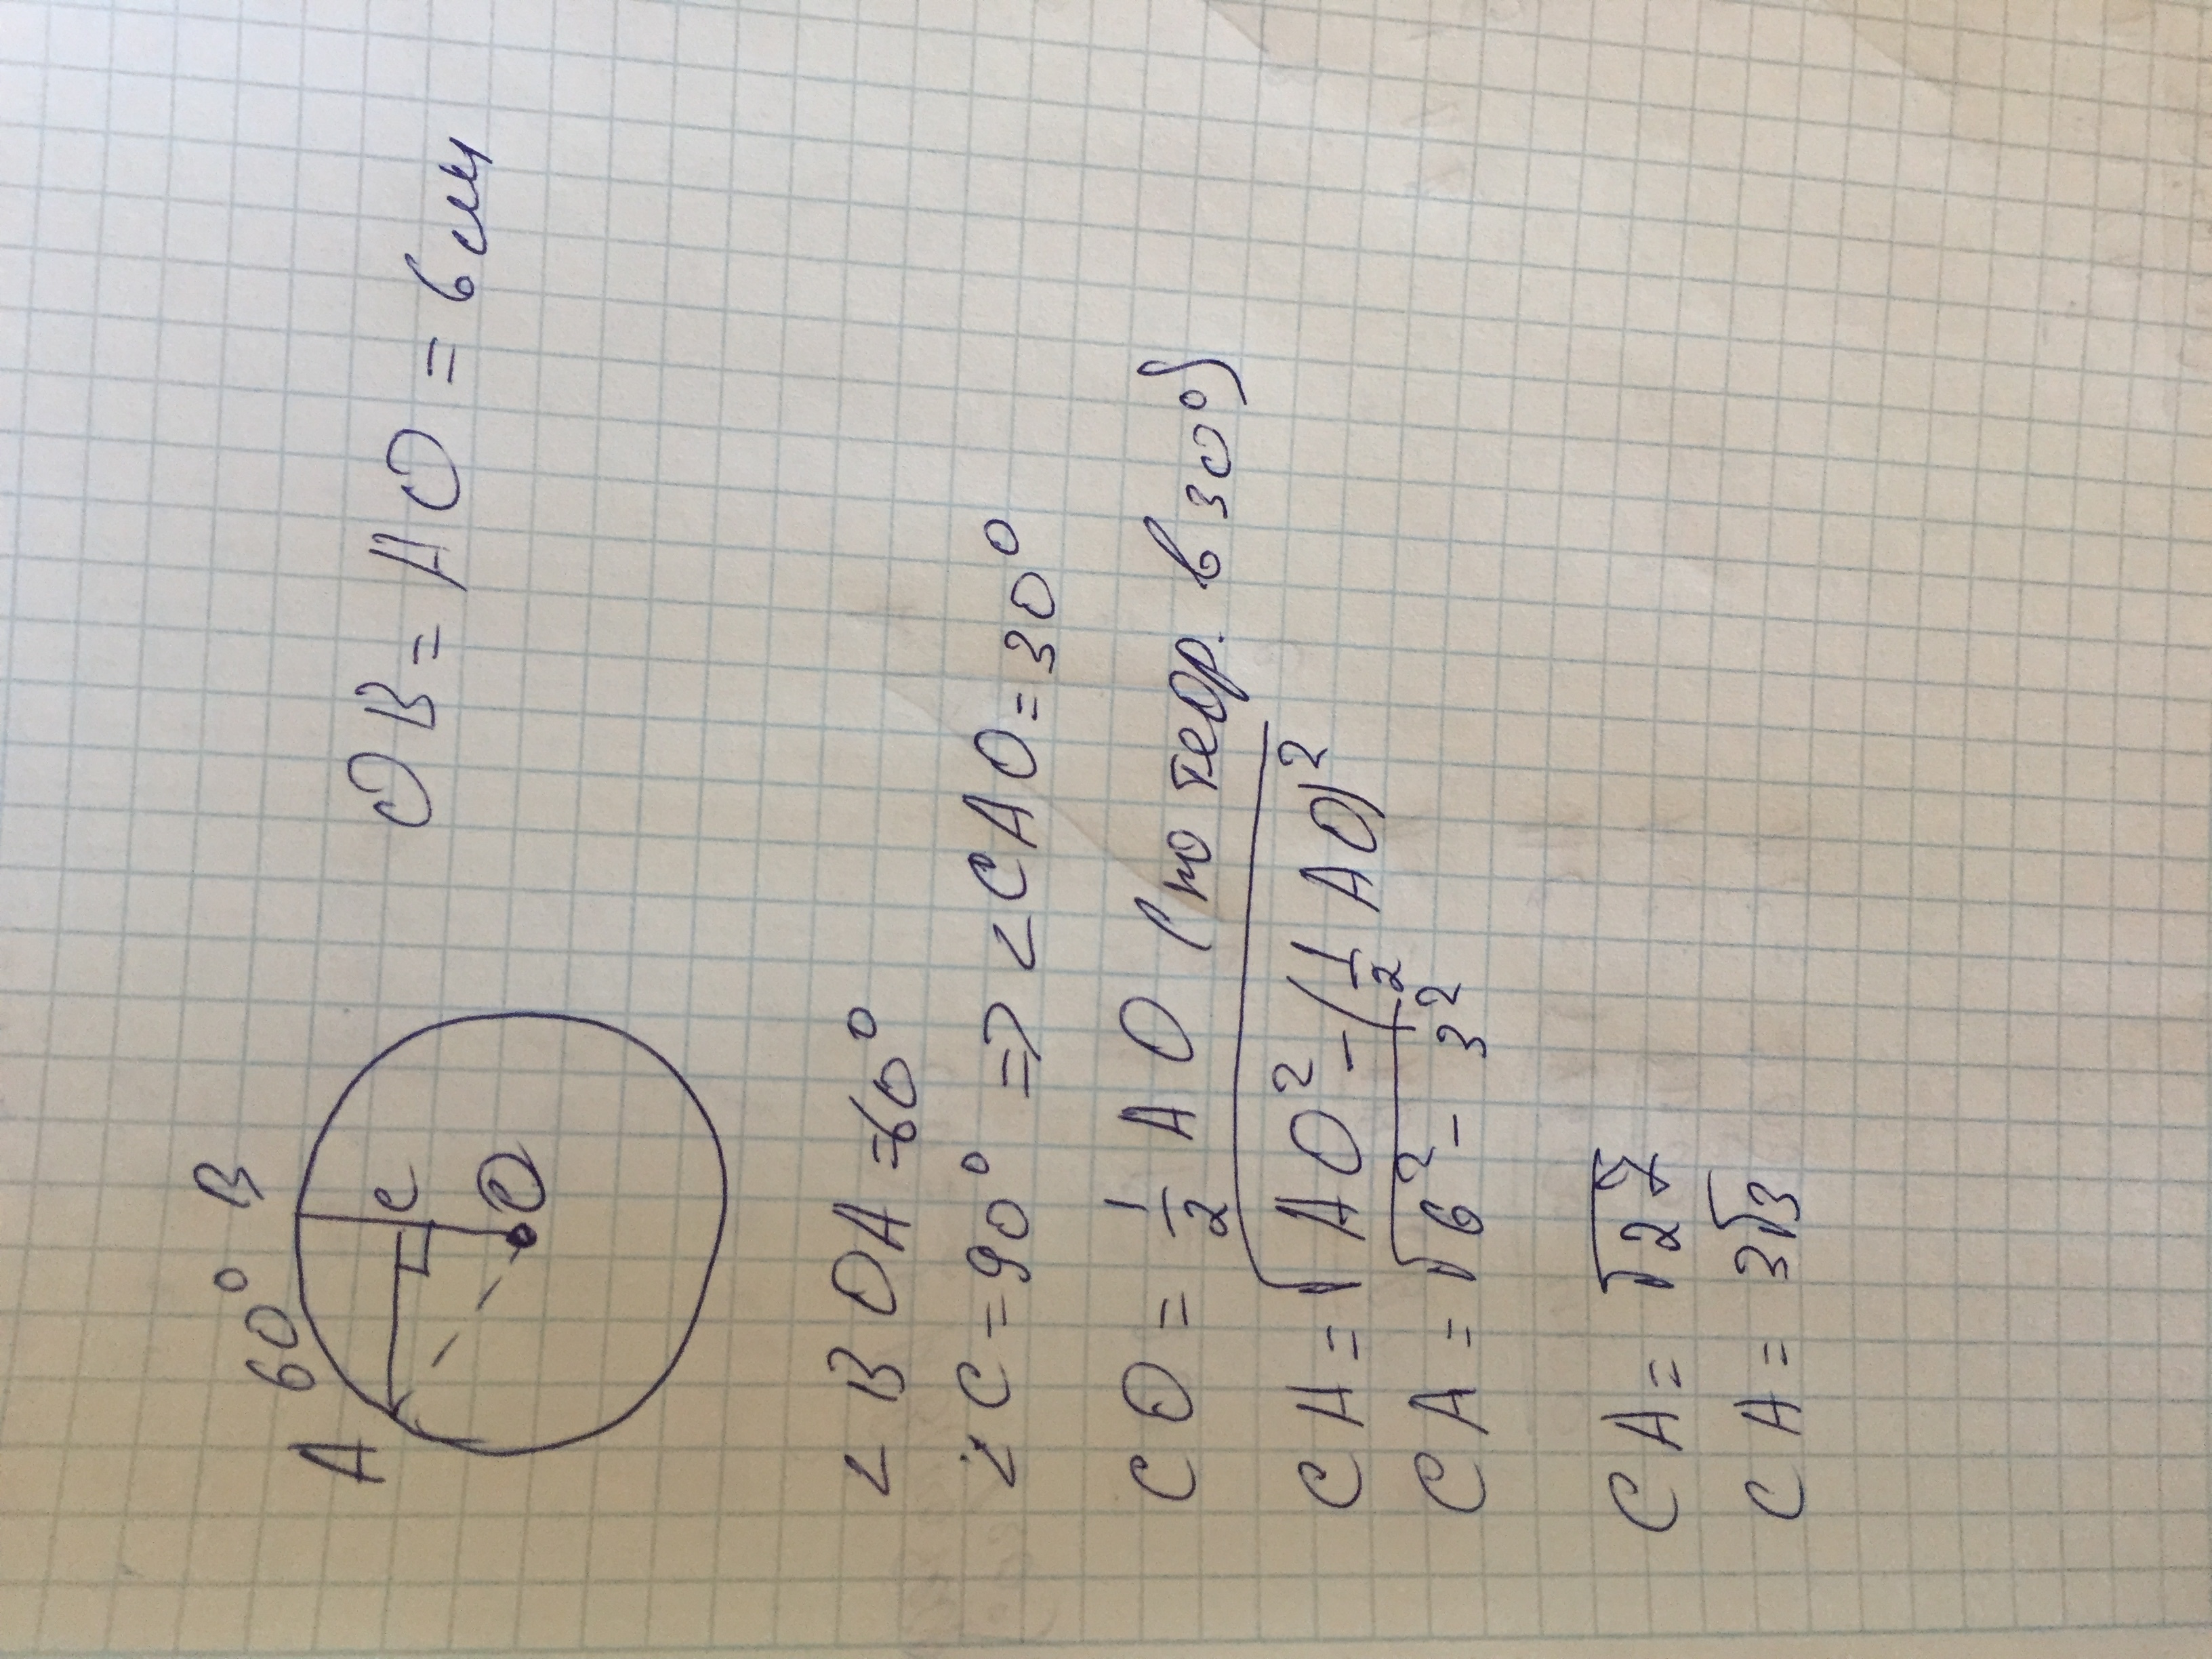 A 60° B
C
O
OB = AO = 6 см
∠BOA = 60°
∠C = 90° => ∠CAO = 30°
CO = 1/2 AO (по теор. в 30°)
CA = √(AO² - (1/2 AO)²)
CA = √(6² - 3²)
CA = √27
CA = 3√3